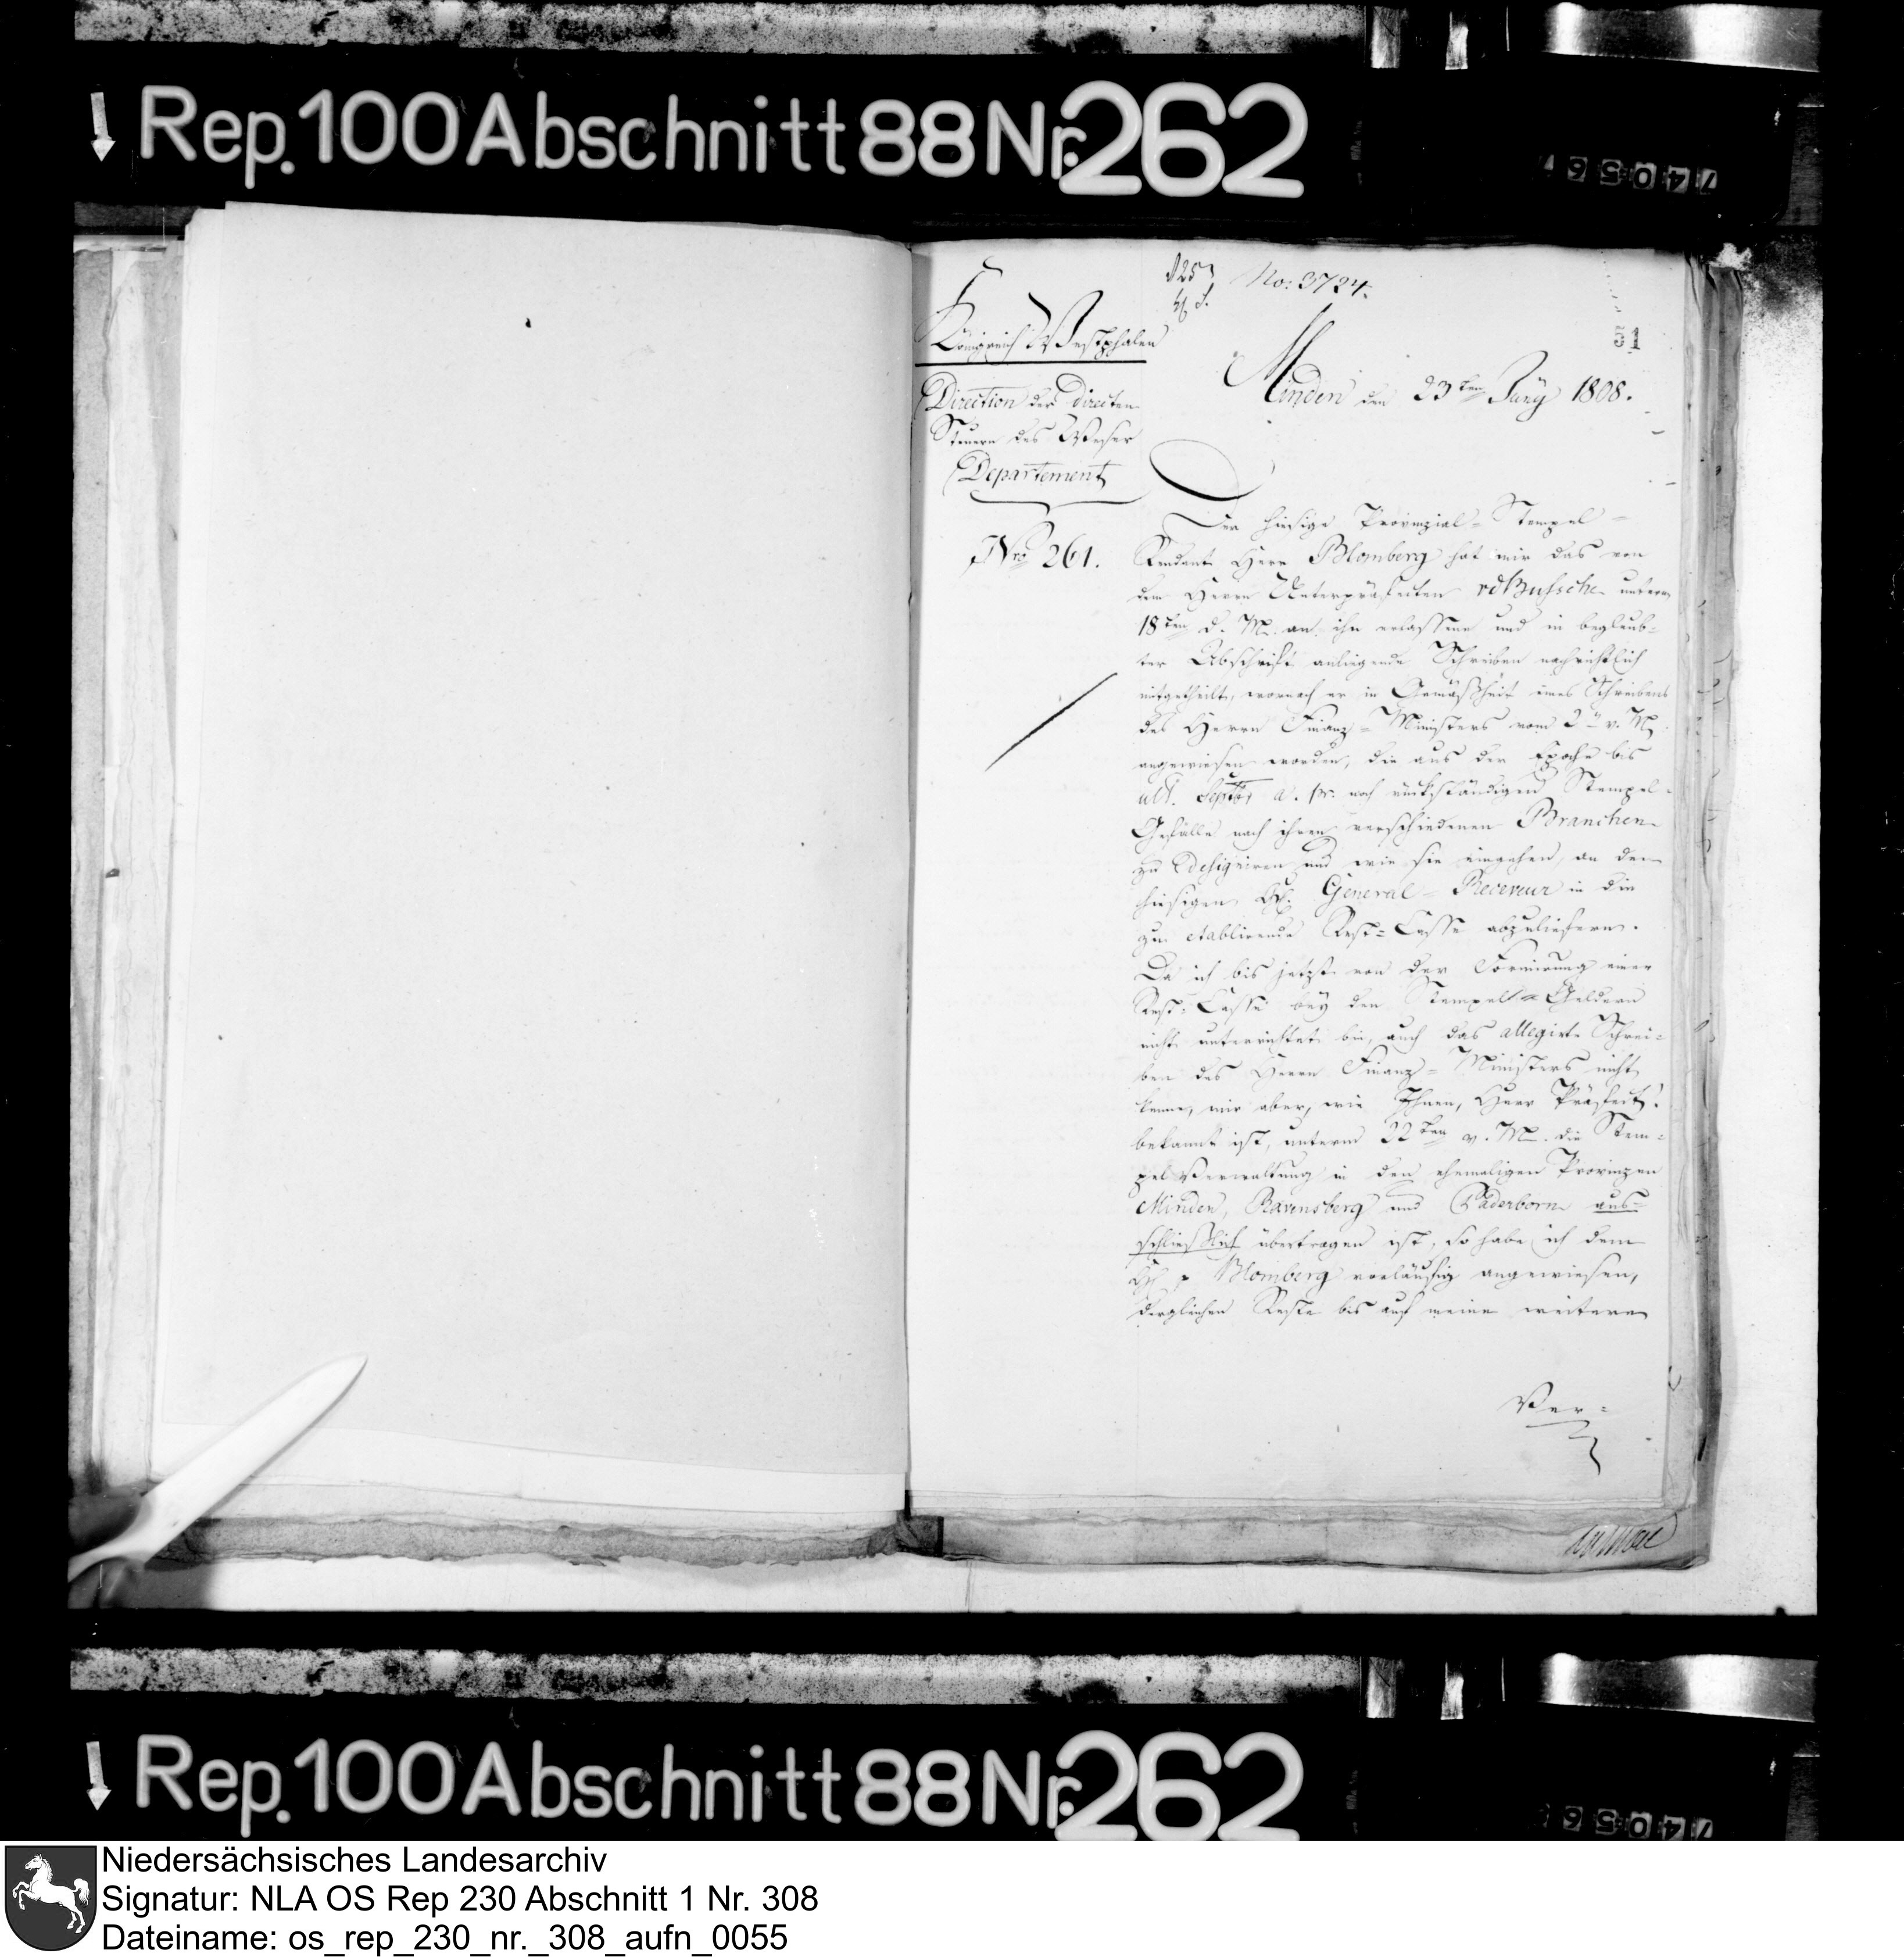 Rep. 100 Abschnitt 88 Nr. 262
740567
No: 3724.
51
Königreich Westphalen
Direction der directen
Steuern des Weser
Departement
Nro 261.
Minden den 23ten Juny 1808.
Der hiesige Provinzial-Stempel-
Rendant Herr Blomberg hat mir das von
dem Herrn Unterpräfecten vdBussche unterm
18ten d. M. an ihn erlassene und in beglaub-
ter Abschrift anliegende Schreiben nachrichtlich
mitgetheilt, wornach er in Gemäßheit eines Schreibens
des Herrn Finanz-Ministers vom 2n v. M.
angewiesen worden, die aus der Epoche bis
ult. Septbr a. pr. noch rückständigen Stempel-
Gefälle nach ihren verschiedenen Branchen
zu designiren und wie sie eingehen, an den
hiesigen H. General-Receveur in die
zu etablirende Rest-Casse abzuliefern.
Da ich bis jetzt von der Formirung einer
Rest-Casse bey den Stempel-Geldern
nicht unterrichtet bin, auch das allegirte Schrei-
ben des Herrn Finanz-Ministers nicht
kenne, mir aber, wie Ihnen, Herr Präfect!
bekannt ist, unterm 22ten v. M. die Stem-
pel Verwaltung in den ehemaligen Provinzen
Minden, Ravensberg und Paderborn aus-
schließlich übertragen ist, so habe ich dem
H. p Blomberg vorläufig angewiesen,
dergleichen Reste bis auf meine weitere
Ver-
Rep. 100 Abschnitt 88 Nr. 262
740567
Niedersächsisches Landesarchiv
Signatur: NLA OS Rep 230 Abschnitt 1 Nr. 308
Dateiname: os_rep_230_nr._308_aufn_0055